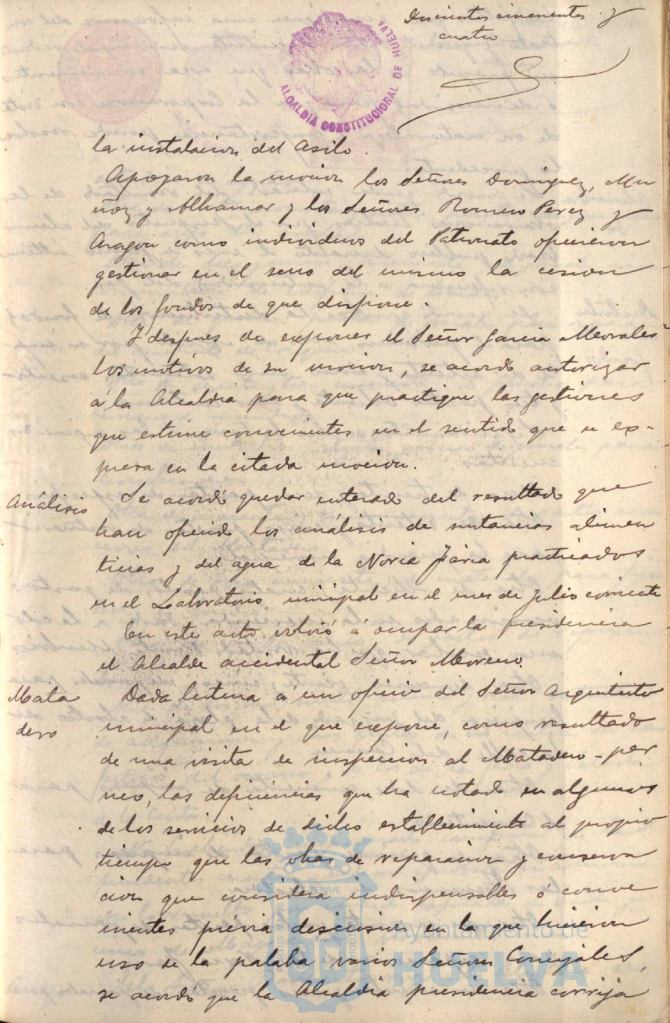 Doscientos cincuenta y
cuatro
ALCALDIA CONSTITUCIONAL DE HUELVA
la instalacion del Asilo.
Apoyaron la mocion los Señores Dominguez, Mu
ñoz y Alhamar y los Señores Romero Perez y
Aragon como individuos del Patronato ofrecieron
gestionar en el seno del mismo la cesion
de los fondos de que dispone.
Y despues de exponer el Señor Garcia Morales
los motivos de su mocion, se acordó autorizar
á la Alcaldia para que practique las gestiones
que estime convenientes en el sentido que se ex-
presa en la citada mocion.
Análisis
Se acordó quedar enterado del resultado que
han ofrecido los análisis de sustancias alimen
ticias y del agua de la Noria practicados
en el Laboratorio municipal en el mes de Julio corriente
En este acto volvió á ocupar la presidencia
el Alcalde accidental Señor Moreno.
Mata
dero
Dada lectura a un oficio del Señor Arquitecto
municipal en el que expone, como resultado
de una visita de inspeccion al Matadero-
las deficiencias que ha notado en algunos
de los servicios de dicho establecimiento al propio
tiempo que las obras de reparacion y conserva
cion que considera indispensables ó conve
nientes prévia descusion en la que hicieron
uso de la palaba varios Señores Concejales,
se acordó que la Alcaldia presidencia corrija
Ayuntamiento de
HUELVA